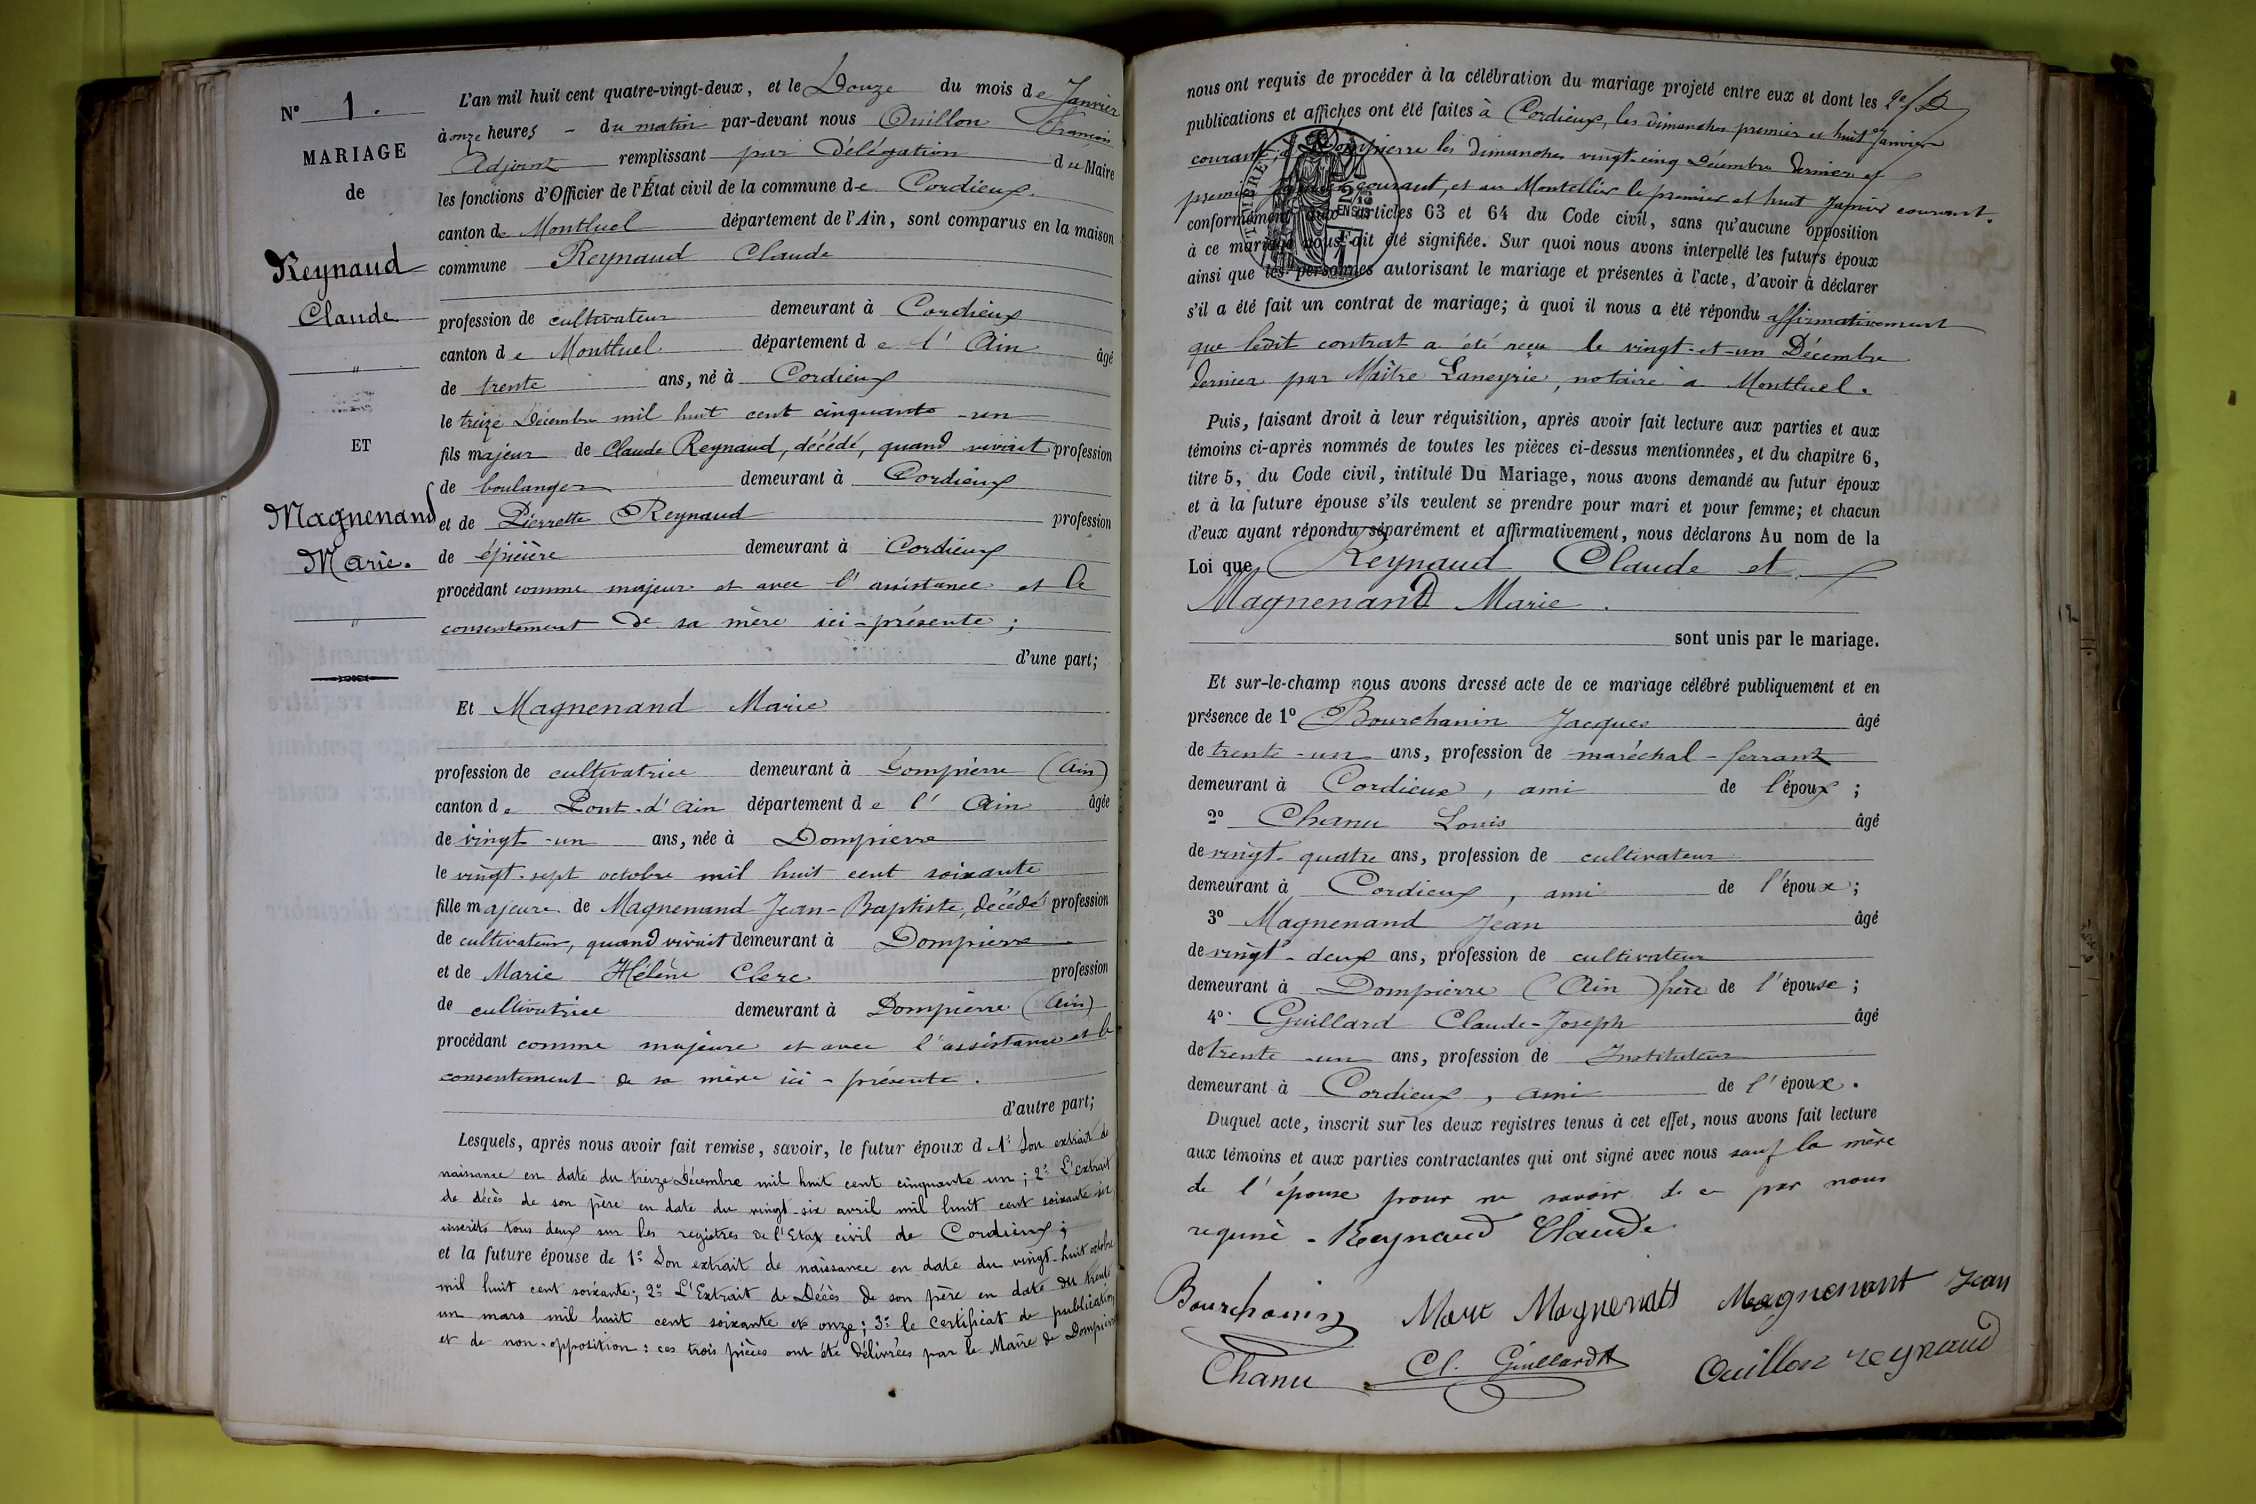 N° 1.
MARIAGE
de
Reynaud
Claude
"
ET
Magnenand
Marie.
"
L'an mil huit cent quatre-vingt-deux, et le Douze du mois de Janvier
à onze heures - du matin par-devant nous Ouillon François
Adjoint remplissant par Délégation du Maire
les fonctions d'Officier de l'État civil de la commune de Cordieux.
canton de Montluel département de l'Ain, sont comparus en la maison
commune Reynaud Claude
profession de cultivateur demeurant à Cordieux
canton de Montluel département de l'Ain âgé
de trente ans, né à Cordieux
le treize Décembre mil huit cent cinquante-un
fils majeur de Claude Reynaud, décédé, quand vivait profession
de boulanger demeurant à Cordieux
et de Pierrette Reynaud profession
de épicière demeurant à Cordieux
procédant comme majeur et avec l'assistance et le
consentement de sa mère ici-présente;
d'une part;
Et Magnenand Marie
profession de cultivatrice demeurant à Dompierre (Ain)
canton de Pont-d'Ain département de l'Ain âgée
de vingt-un ans, née à Dompierre
le vingt-sept octobre mil huit cent soixante
fille majeure de Magnenand Jean-Baptiste, décédé profession
de cultivateur, quand vivait demeurant à Dompierre
et de Marie Hélène Clerc profession
de cultivatrice demeurant à Dompierre (Ain)
procédant comme majeure et avec l'assistance et le
consentement de sa mère ici-présente.
d'autre part;
Lesquels, après nous avoir fait remise, savoir, le futur époux d 1° Son extrait de
naissance en date du treize Décembre mil huit cent cinquante un; 2° L'extrait
de décès de son père en date du vingt-six avril mil huit cent soixante six
inscrits tous deux sur les registres de l'Etat civil de Cordieux;
et la future épouse de 1° Son extrait de naissance en date du vingt-huit octobre
mil huit cent soixante; 2° L'Extrait de Décès de son père en date du trente
un mars mil huit cent soixante et onze; 3° le Certificat de publication
et de non-opposition: ces trois pièces ont été délivrées par le Maire de Dompierre
nous ont requis de procéder à la célébration du mariage projeté entre eux et dont les
publications et affiches ont été faites à Cordieux, les dimanches premier et huit Janvier
courant, à Dompierre les dimanches vingt-cinq Décembre dernier et
premier Janvier courant, et au Montellier le premier et huit Janvier courant.
conformément aux articles 63 et 64 du Code civil, sans qu'aucune opposition
à ce mariage nous ait été signifiée. Sur quoi nous avons interpellé les futurs époux
ainsi que les personnes autorisant le mariage et présentes à l'acte, d'avoir à déclarer
s'il a été fait un contrat de mariage; à quoi il nous a été répondu affirmativement
que ledit contrat a été reçu le vingt-et-un Décembre
dernier par Maître Laneyrie, notaire à Montluel.
Puis, faisant droit à leur réquisition, après avoir fait lecture aux parties et aux
témoins ci-après nommés de toutes les pièces ci-dessus mentionnées, et du chapitre 6,
titre 5, du Code civil, intitulé Du Mariage, nous avons demandé au futur époux
et à la future épouse s'ils veulent se prendre pour mari et pour femme; et chacun
d'eux ayant répondu séparément et affirmativement, nous déclarons Au nom de la
Loi que Reynaud Claude et
Magnenand Marie.
sont unis par le mariage.
Et sur-le-champ nous avons dressé acte de ce mariage célébré publiquement et en
présence de 1° Bourchanin Jacques âgé
de trente-un ans, profession de maréchal-ferrant
demeurant à Cordieux, ami de l'époux;
2° Chanu Louis âgé
de vingt-quatre ans, profession de cultivateur
demeurant à Cordieux, ami de l'époux;
3° Magnenand Jean âgé
de vingt-deux ans, profession de cultivateur
demeurant à Dompierre (Ain) frère de l'épouse;
4° Guillard Claude-Joseph âgé
de trente-un ans, profession de Instituteur
demeurant à Cordieux, ami de l'époux.
Duquel acte, inscrit sur les deux registres tenus à cet effet, nous avons fait lecture
aux témoins et aux parties contractantes qui ont signé avec nous sauf la mère
de l'épouse pour ne savoir de ce par nous
requise - Reynaud Claude
Bourchanin Magnenant Jean
Chanu Cl. Guillard Ouillon reynaud